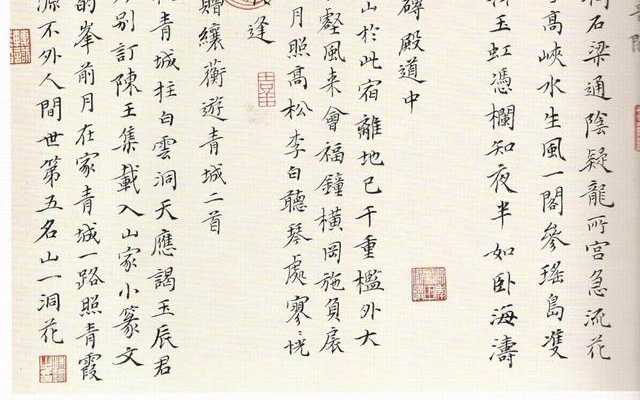 石梁通陰疑龍所宮急流花
高峽水生風一閣參瑤島雙
玉虹憑欄知夜半如卧海濤
殿道中
山於此宿離地已千重檻外大
壑風来會福鐘橫岡施負扆
月照高松李白聽琴處寥恍
逢
贈纕蘅遊青城二首
青城拄白雲洞天應謁玉辰君
別訂陳王集載入山家小篆文
的峯前月在家青城一路照青霞
源不外人間世第五名山一洞花